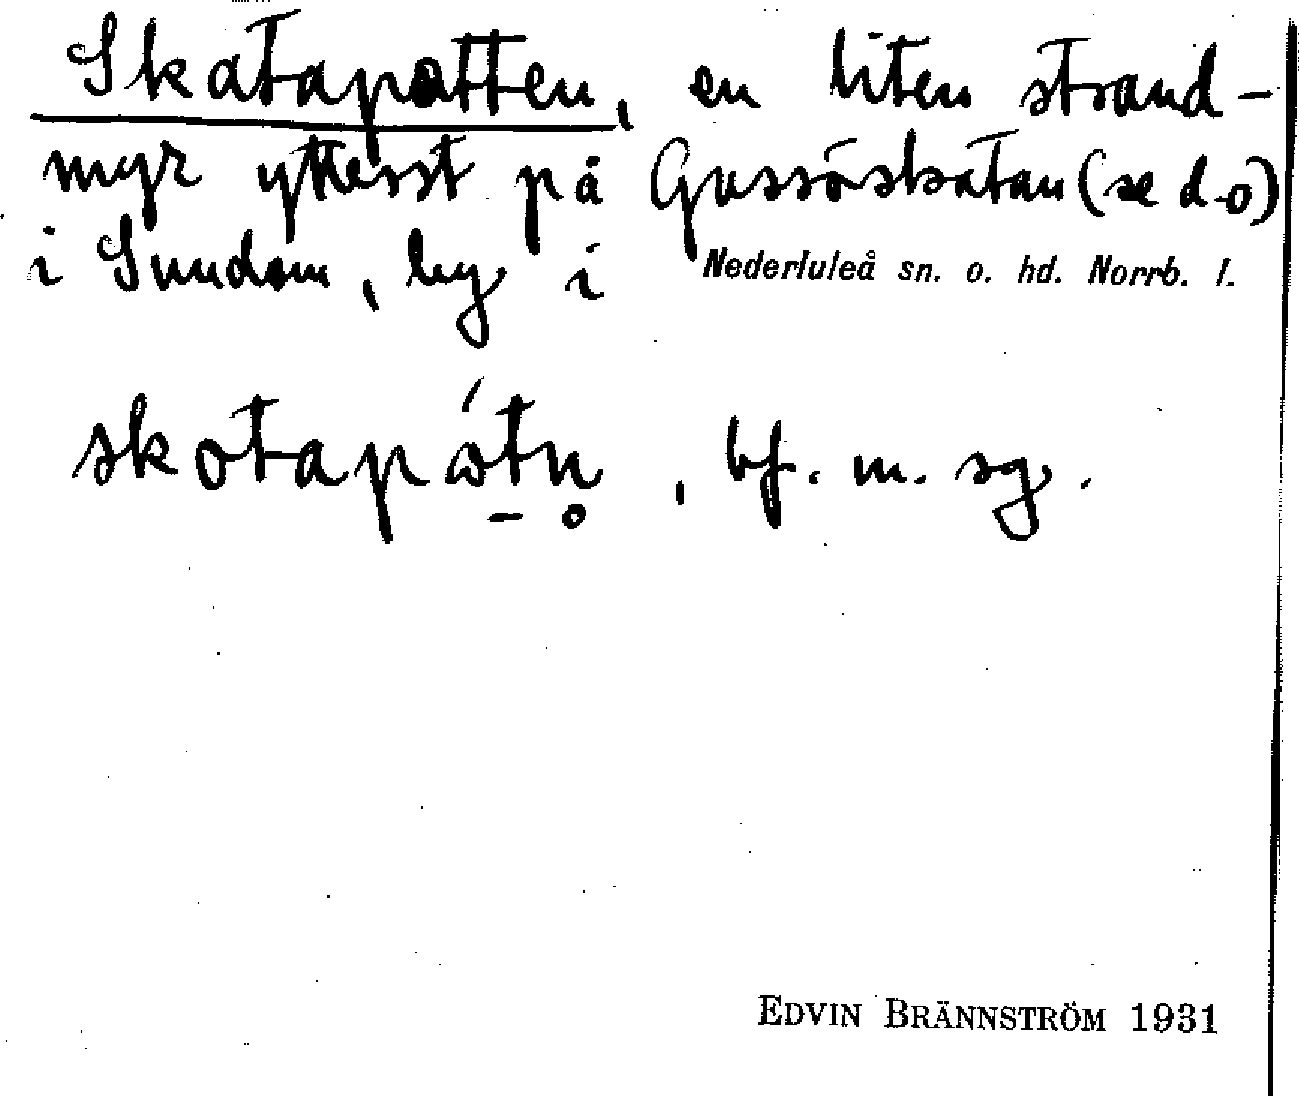 Skatapotten, en liten strand-
myr ytterst på Gussöskatan (se d.o)
i Sundom, by i Nederluleå sn. o. hd. Norrb. l.
skotapώtn̥, bf. m. sg.
EDVIN BRÄNNSTRÖM 1931